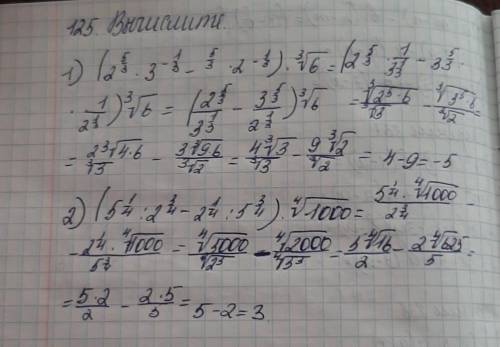 125. Вычислите.
1) (2^{5/3} · 3^{-1/3} - ^{5/3} · 2^{-1/3}) · ∛6 = (2^{5/3} · 1/3^{1/3} - 3^{5/3} ·
· 1/2^{1/3}) ∛6 = (2^{5/3}/3^{1/3} - 3^{5/3}/2^{1/3}) ∛6 = ∛(2^5·6)/∛3 - ∛(3^5·6)/∛2 =
= 2∛(4·6)/∛3 - 3∛(9·6)/∛2 = 4∛3/∛3 - 9∛2/∛2 = 4-9=-5
2) (5^{1/4} : 2^{3/4} - 2^{1/4} : 5^{3/4}) · ∜1000 = 5^{1/4} · ∜1000/2^{3/4} -
- 2^{1/4} · ∜1000/5^{3/4} = ∜5000/∜2^3 - ∜2000/∜5^3 = 5∜16/2 - 2∜625/5 =
= 5·2/2 - 2·5/5 = 5-2=3